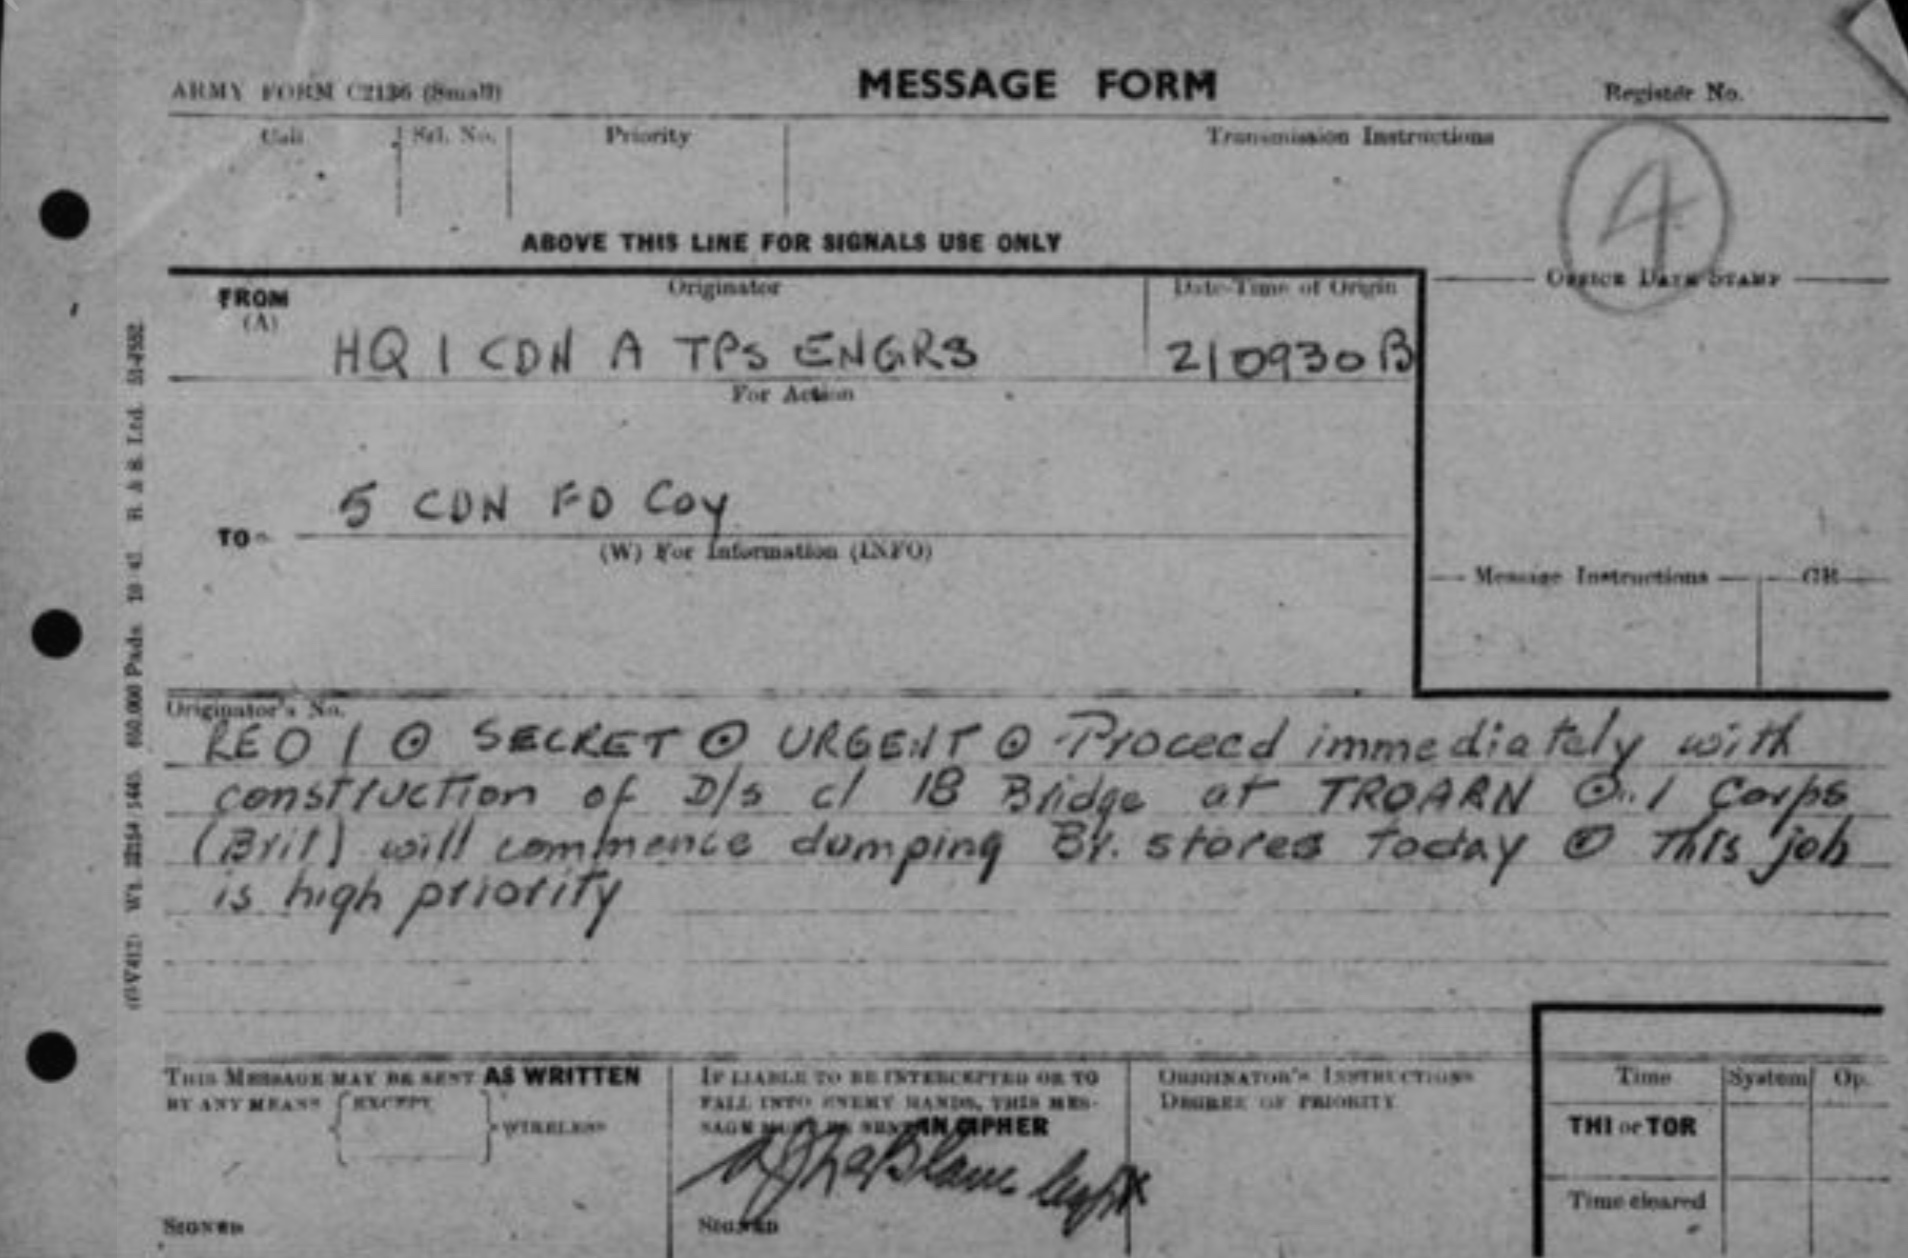 ARMY FORM C2136 (Small)
MESSAGE FORM
Register No.
Call
Srl. No.
Priority
Transmission Instructions
4
ABOVE THIS LINE FOR SIGNALS USE ONLY
FROM
(A)
Originator
Date-Time of Origin
OFFICE DATE STAMP
HQ 1 CDN A TPS ENGRS
210930B
For Action
5 CDN FD Coy
TO
(W) For Information (INFO)
Message Instructions
GR
Originator's No.
REO 1 ⊙ SECRET ⊙ URGENT ⊙ Proceed immediately with
construction of D/s cl 18 Bridge at TROARN ⊙ 1 Corps
(Brit) will commence dumping Br. stores today ⊙ This job
is high priority
THIS MESSAGE MAY BE SENT AS WRITTEN
BY ANY MEANS EXCEPT
WIRELESS
SIGNED
IF LIABLE TO BE INTERCEPTED OR TO
FALL INTO ENEMY HANDS, THIS MES-
SAGE MUST BE SENT IN CIPHER
SIGNED
ORIGINATOR'S INSTRUCTIONS
DEGREE OF PRIORITY
Time
System
Op.
THI or TOR
Time cleared